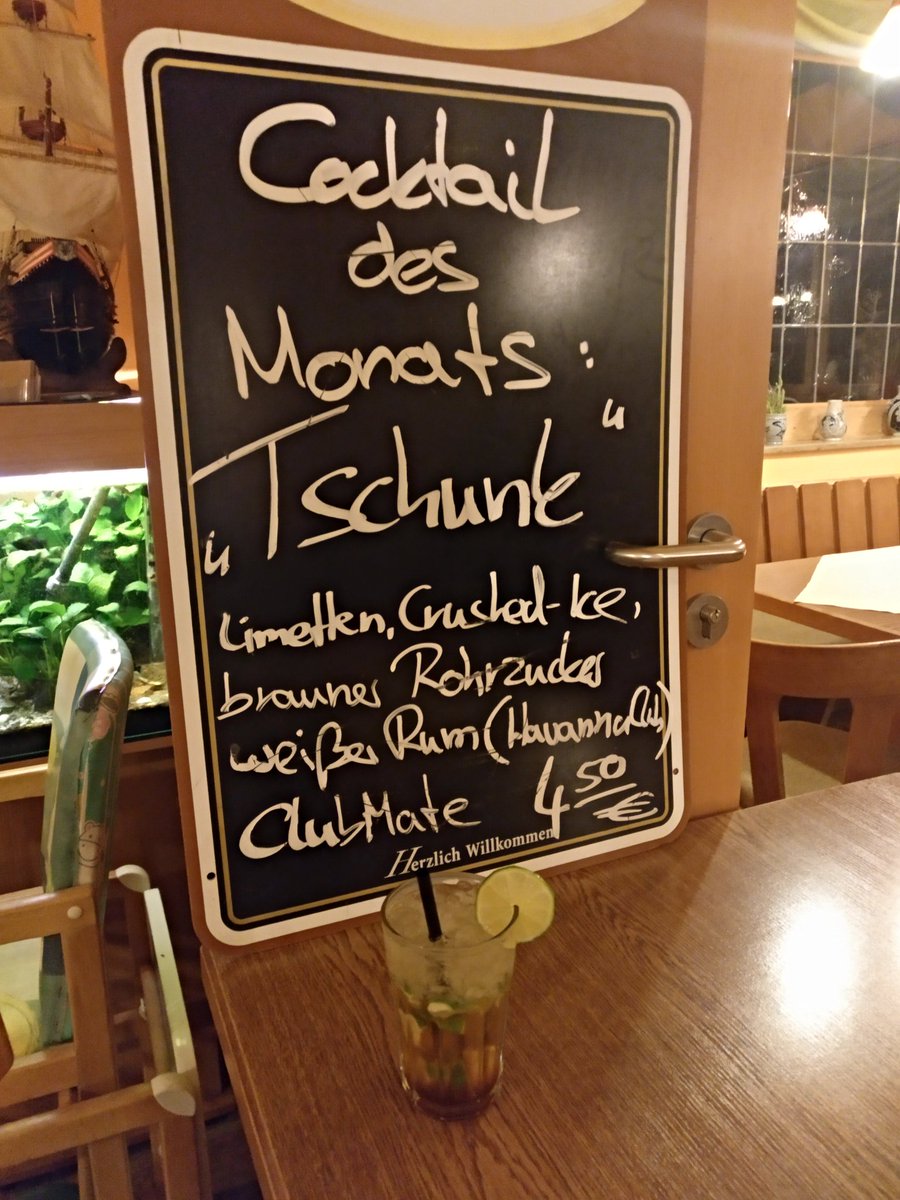 Cocktail
des
Monats:
"Tschunk"
Limetten, Crushed-Ice,
brauner Rohrzucker
weißer Rum (Havanna Club)
ClubMate 4 50 €
Herzlich Willkommen